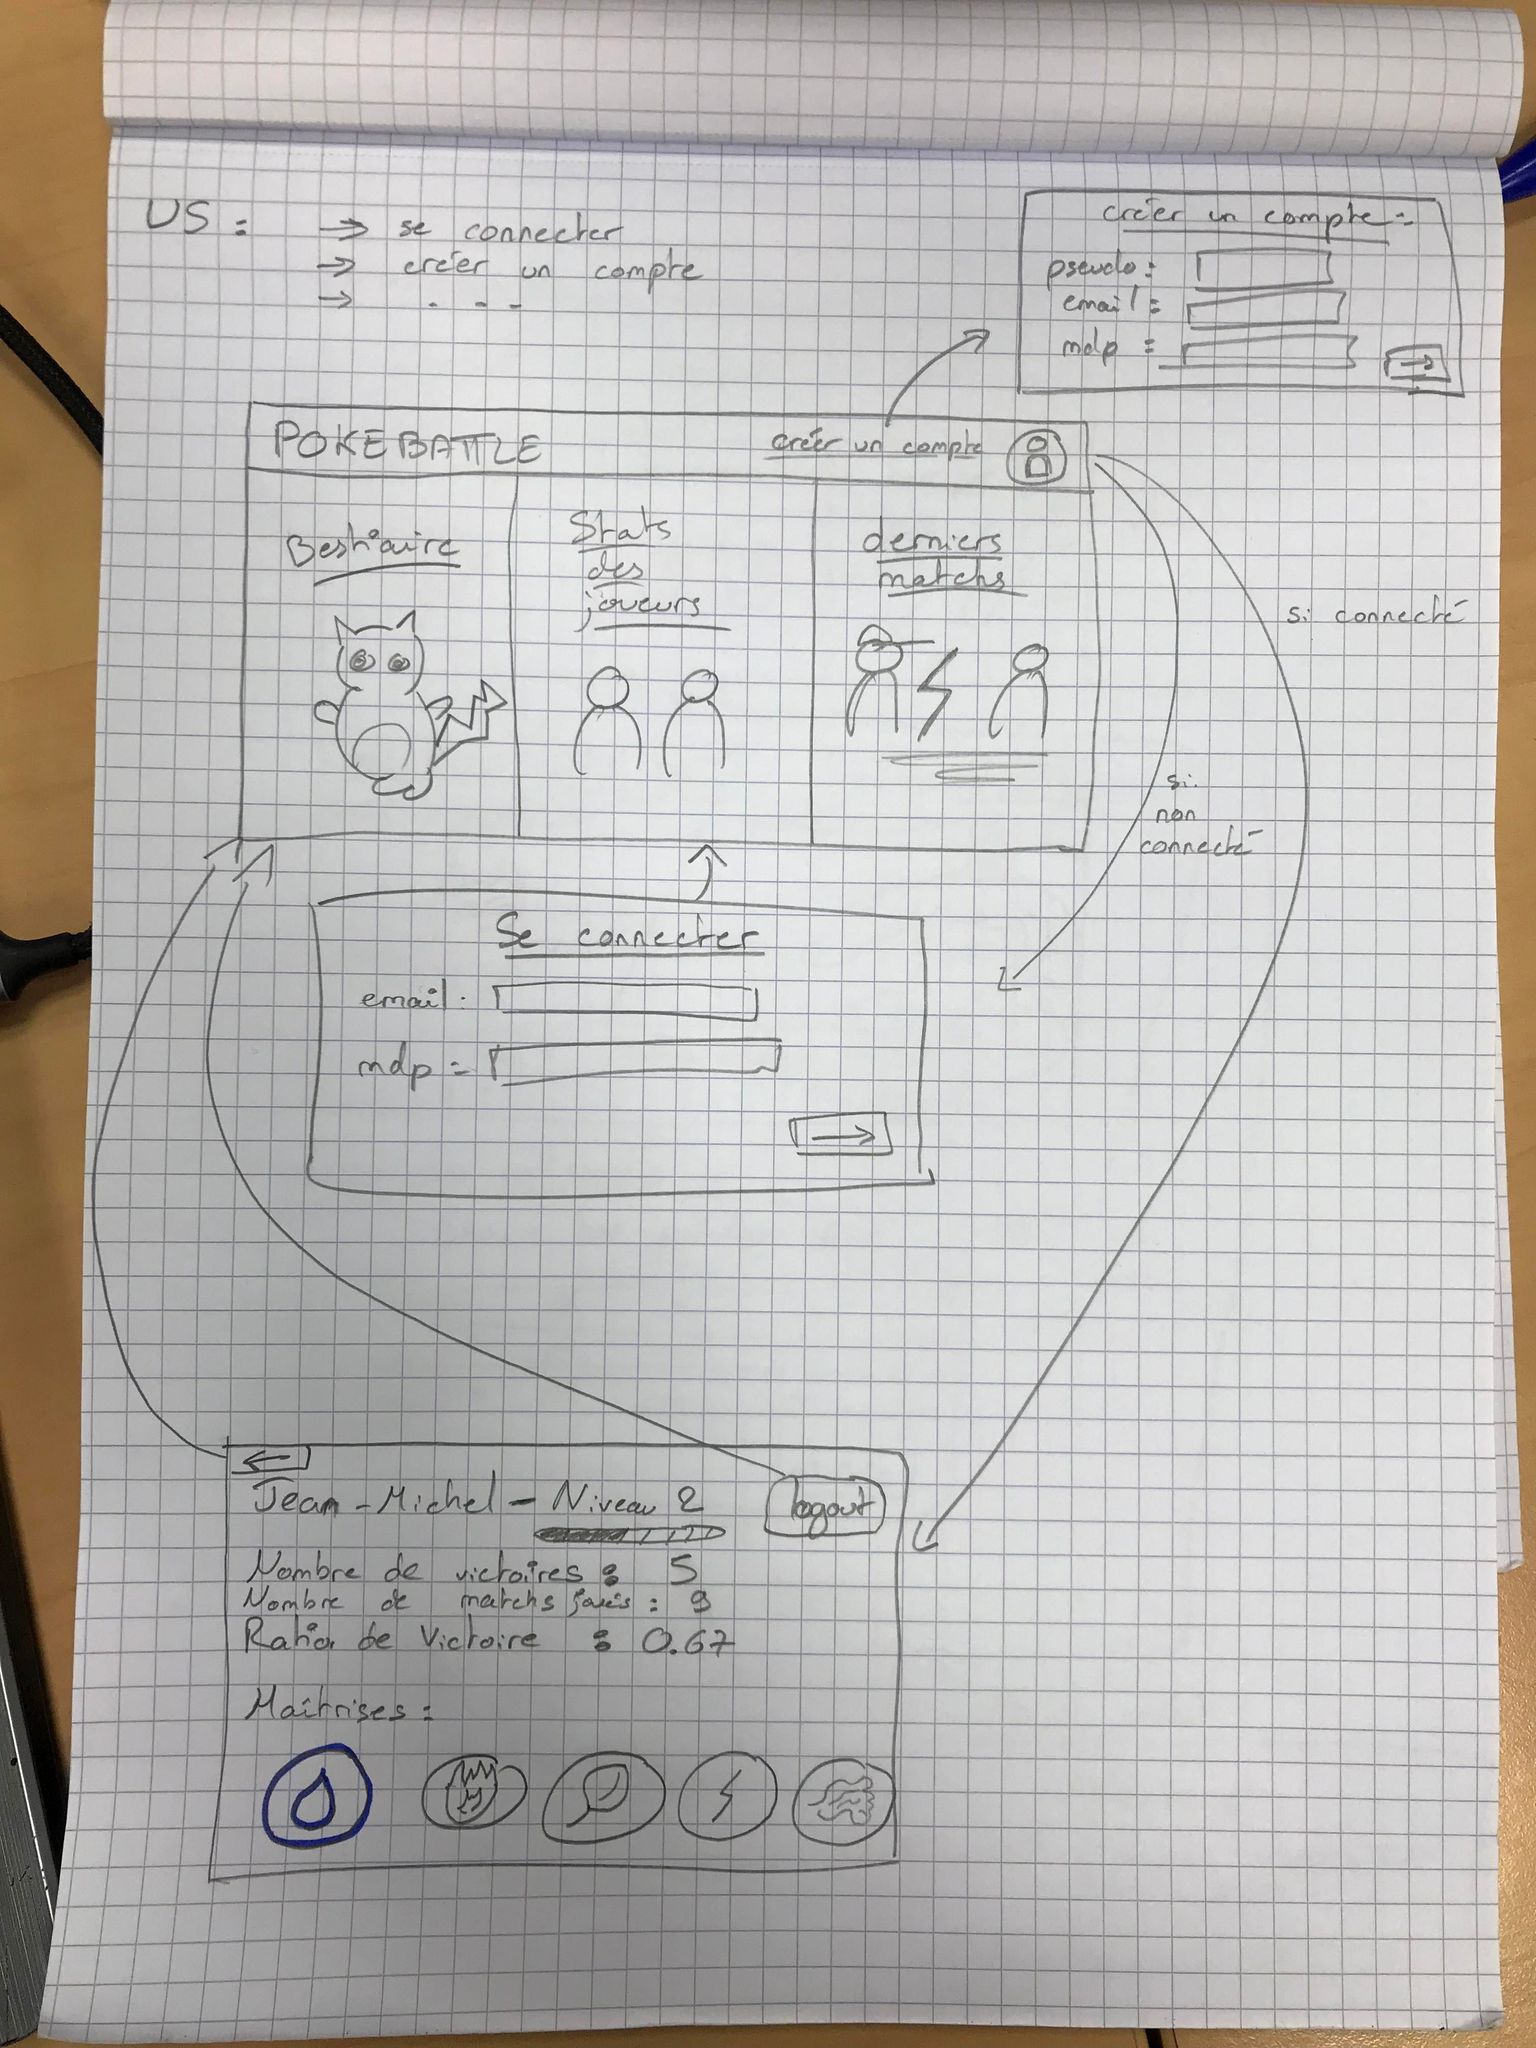 US : → se connecter
→ créer un compte
→ . - -
créer un compte :
pseudo :
email :
mdp :
→
POKEBATTLE
créer un compte
Bestiaire
Stats
des
joueurs
derniers
matchs
si connecté
si
non
connecté
Se connecter
email :
mdp :
→
←
Jean-Michel - Niveau 2
logout
Nombre de victoires : 5
Nombre de matchs joués : 9
Ratio de Victoire : 0.67
Maîtrises :